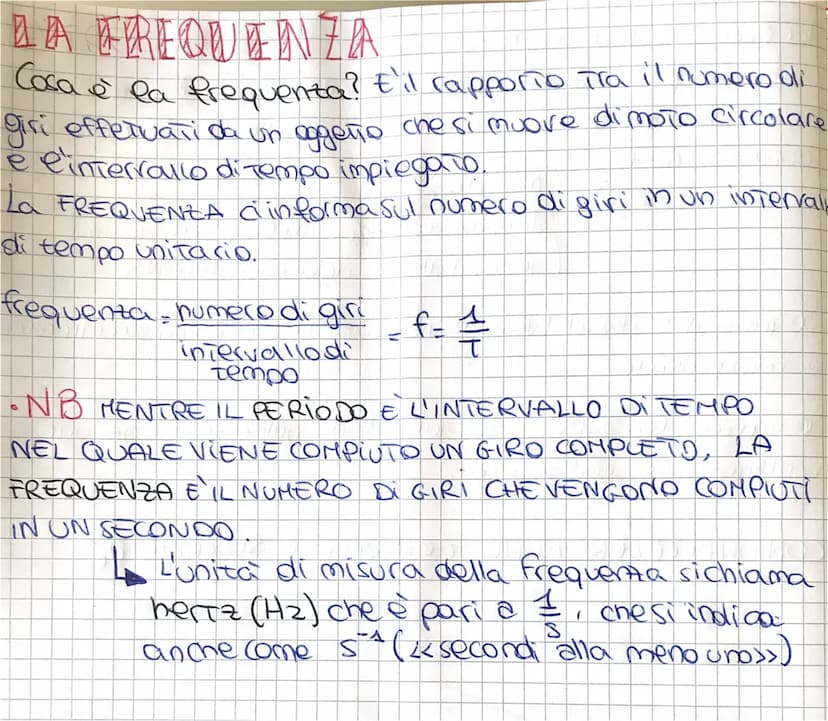 LA FREQUENZA
Cosa è la frequenza? E'il rapporto tra il numero di
giri effetuati da un oggetto che si muove di moto circolare
e l'intervallo di tempo impiegato.
La FREQUENZA ci informa sul numero di giri in un interval
di tempo unitario.
frequenza = numero di giri / intervallo di tempo = f = 1/T
• NB MENTRE IL PERIODO E' L'INTERVALLO DI TEMPO
NEL QUALE VIENE COMPIUTO UN GIRO COMPLETO, LA
FREQUENZA E' IL NUMERO DI GIRI CHE VENGONO COMPIUTI
IN UN SECONDO.
↳ L'unità di misura della frequenza si chiama
hertz (Hz) che è pari a 1/s, che si indica
anche come s⁻¹ (<<secondi alla meno uno>>)